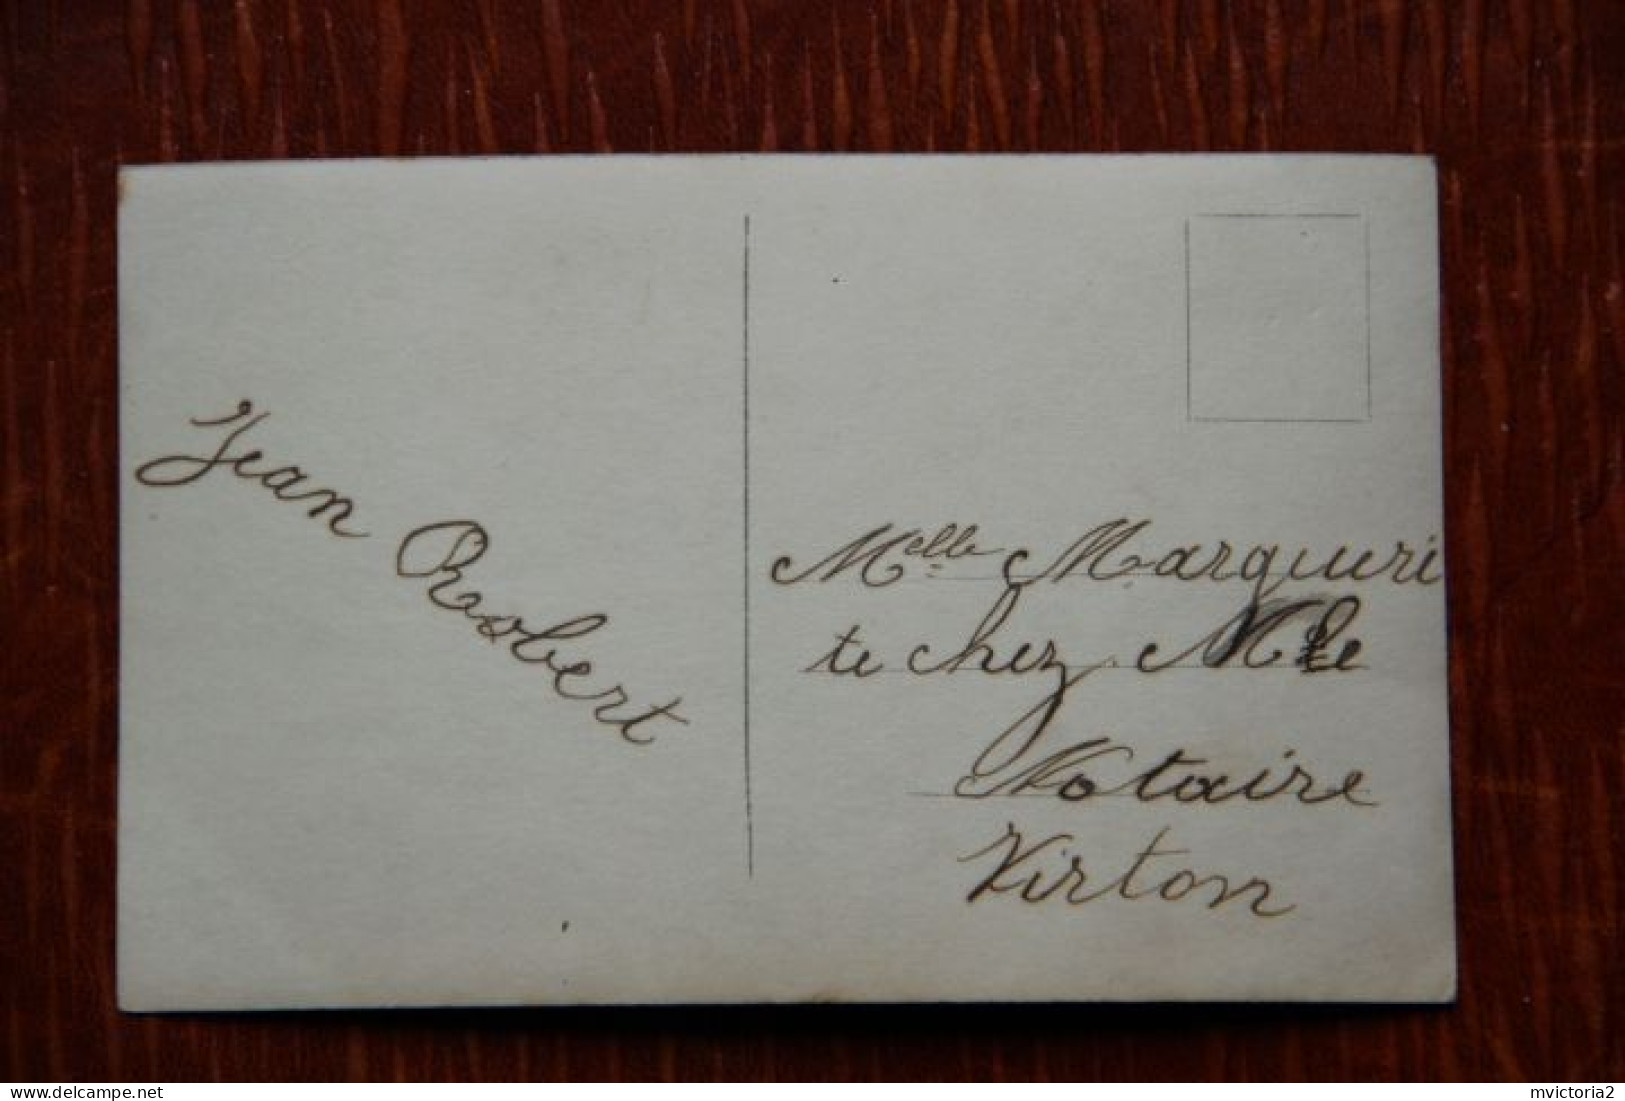 Jean Robert
Mlle Margueri
te chez Mle
Notaire
Virton
mvictoria2